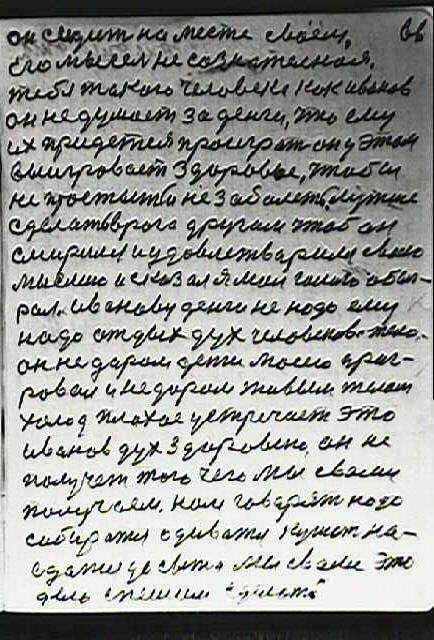 он сидит на месте своём, 66
его мысел не сознателная,
тебя такого человека как иванов
он не думает за денги, что ему
их придется проиграт он у этом
выигровает здоровье, чтобы
не простыть и не заболеть, лутше
сделать врага другом чтоб он
смирили и удовлетварили своею
мыслию и сказал я мол голого обыг-
рал. иванову денги не надо ему
надо отдых дух человеческого тела.
он не даром дети моею проиг-
ровал и не даром живым телом
холод плохое устречает это
иванов дух здоровено, он не
получет того чего мы своим
получаем. нам говарят надо
собирати одевати кушат на-
едатця до сыта мы своим это
дело спешим сделать